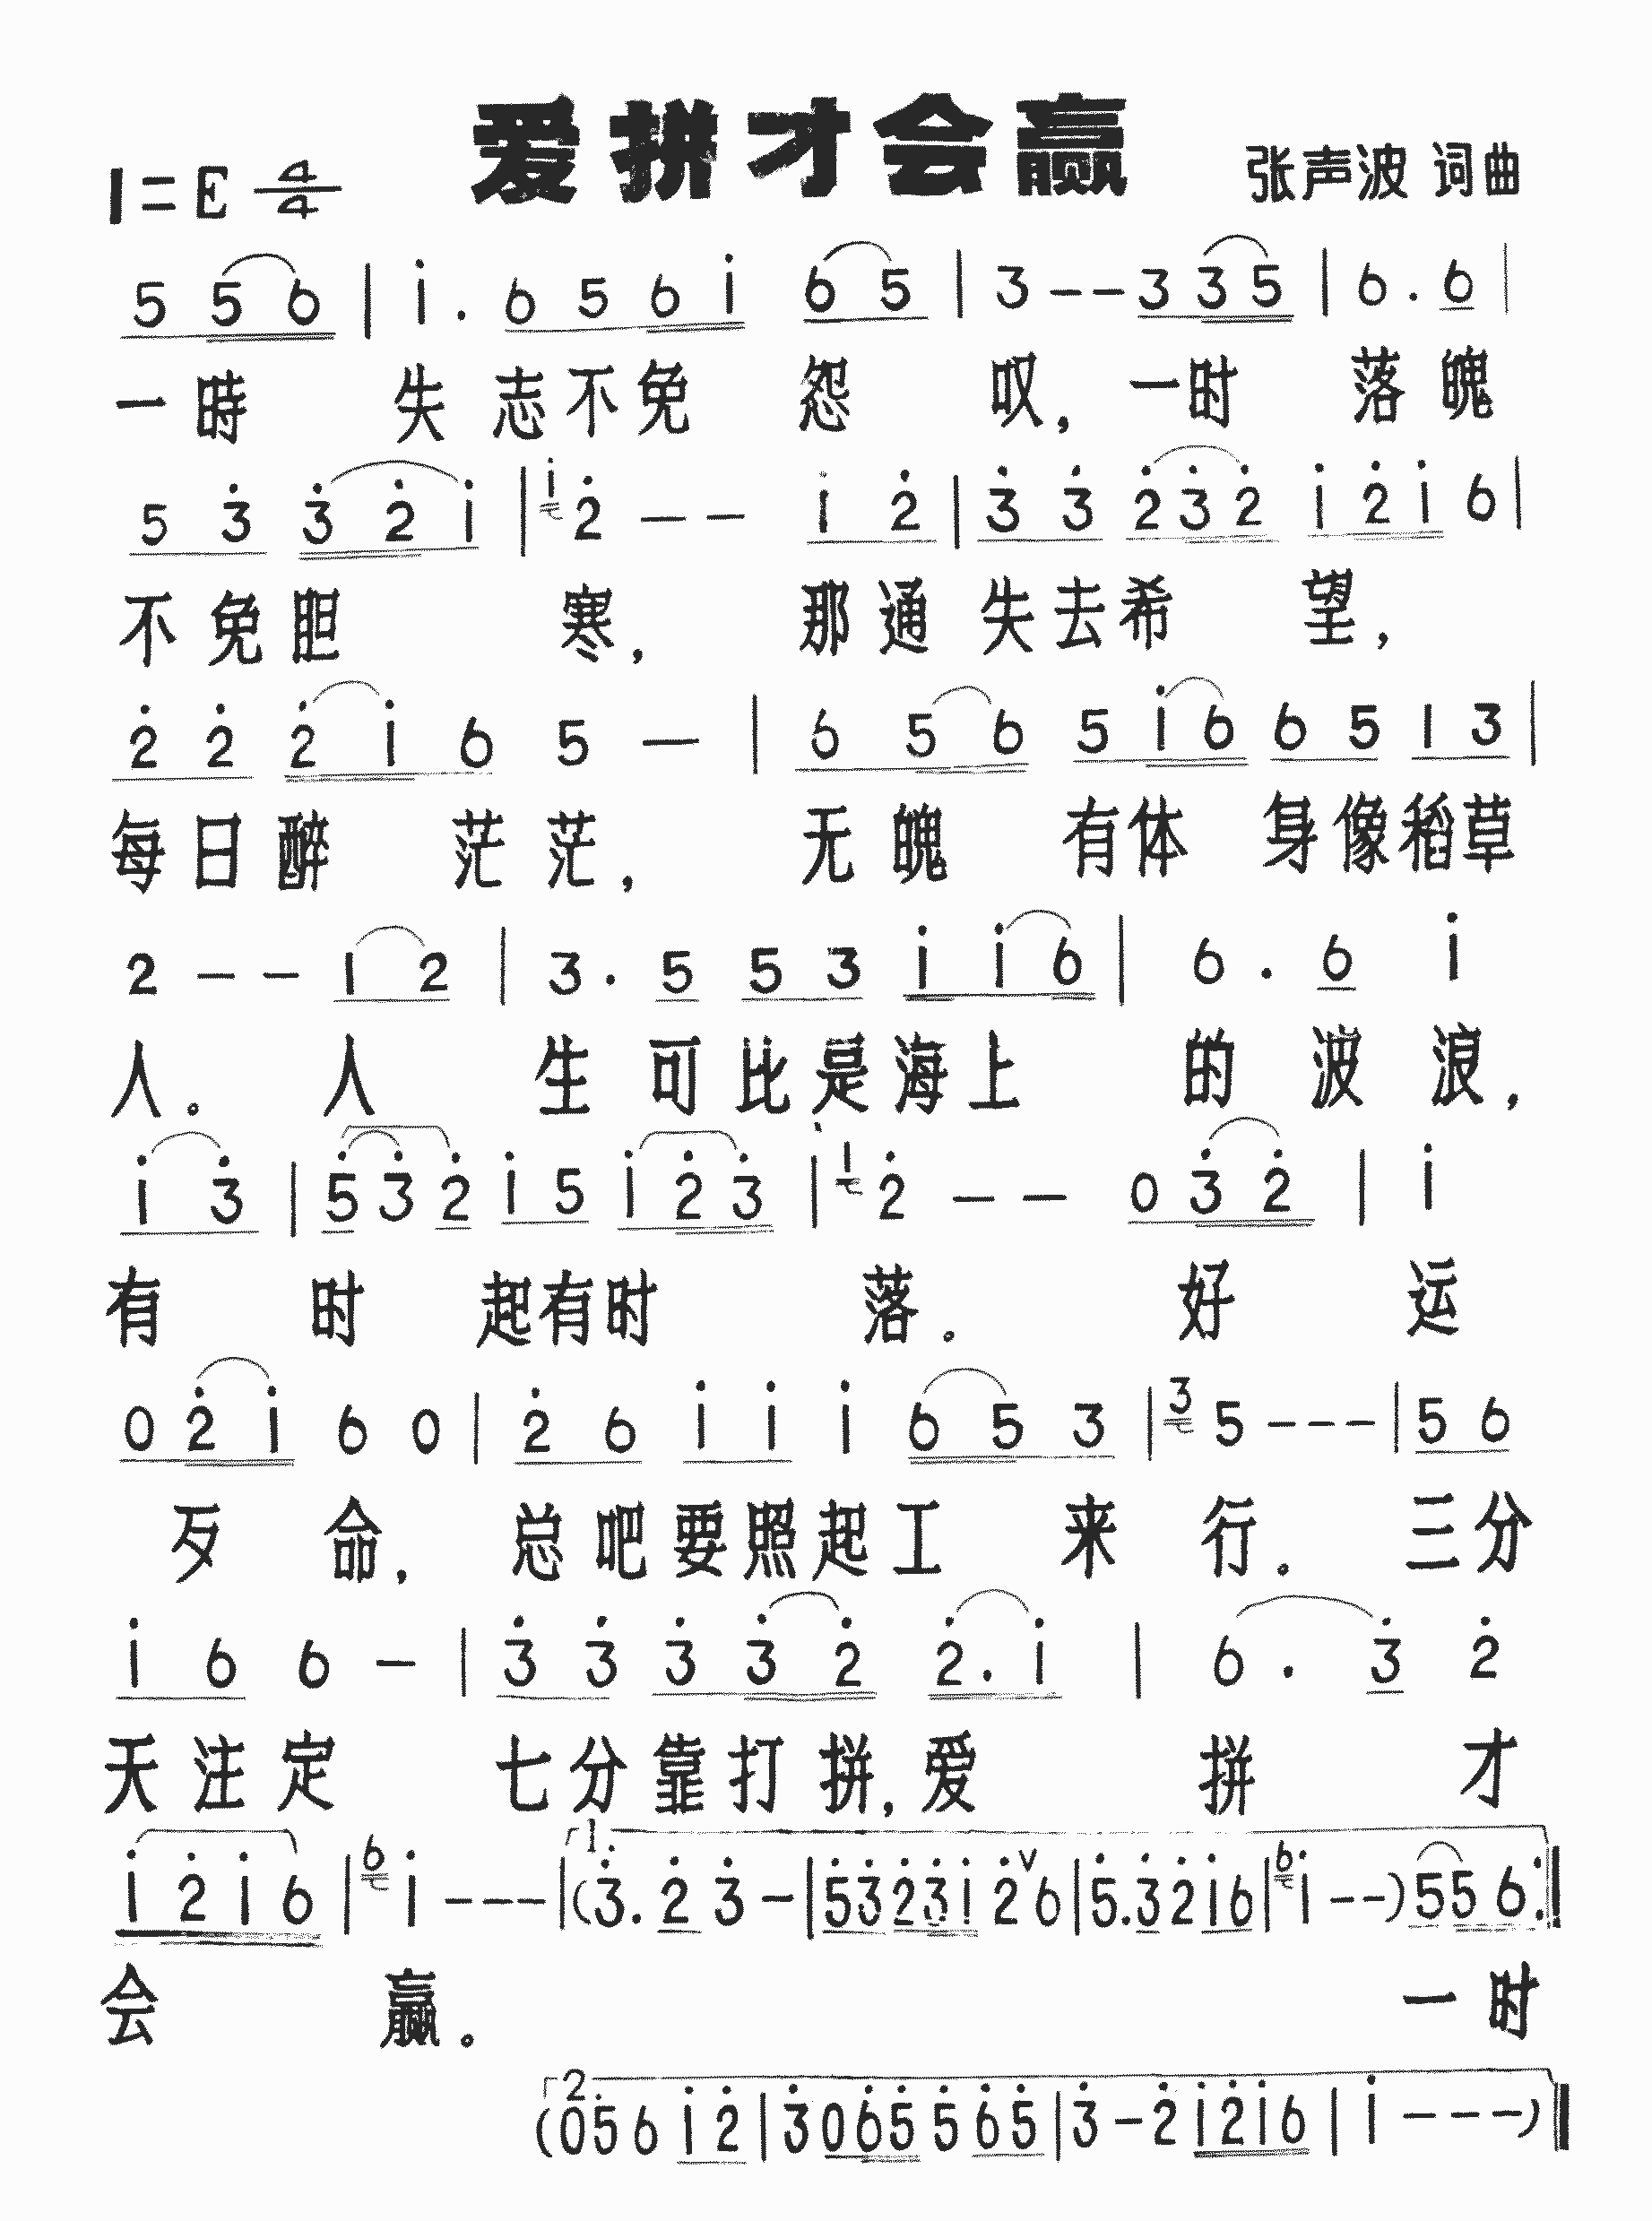 爱拼才会赢
1=E 4/4
张声波 词曲
5 5 6 | i . 6 5 6 i 6 5 | 3 — — 3 3 5 | 6 . 6 |
一時 失志不免 怨 叹，一时 落魄
5 3 3 2 i | i 2 — — i 2 | 3 3 2 3 2 i 2 i 6 |
不免胆 寒， 那通失去希 望，
2 2 2 i 6 5 — | 6 5 6 5 i 6 6 5 1 3 |
每日醉 茫茫， 无魄 有体 身像稻草
2 — — 1 2 | 3 . 5 5 3 i i 6 | 6 . 6 i
人。 人 生 可比是海上 的 波 浪，
i 3 | 5 3 2 i 5 i 2 3 | i 2 — — 0 3 2 | i
有 时 起有时 落。 好 运
0 2 i 6 0 | 2 6 i i i 6 5 3 | 3 5 — — — | 5 6
歹 命， 总吧要照起工 来 行。 三分
i 6 6 — | 3 3 3 3 2 2 . i | 6 . 3 2
天注定 七分靠打拼，爱 拼 才
1.
i 2 i 6 | 6 i — — — | (3 . 2 3 — | 5 3 2 3 i 2 ∨ 6 | 5 . 3 2 i 6 | 6 i — —) 5 5 6 :‖
会 赢。 一时
2
(0 5 6 i 2 | 3 0 6 5 5 6 5 | 3 — 2 i 2 i 6 | i — — —) ‖